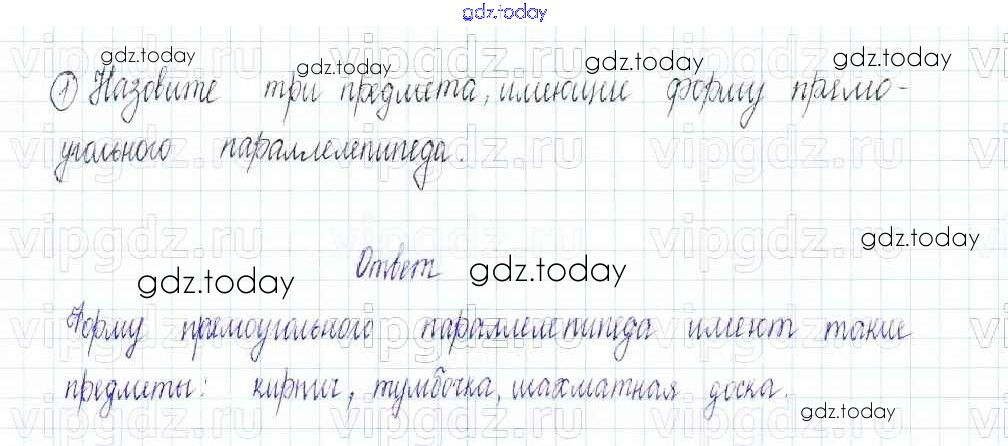 gdz.today
gdz.today gdz.today gdz.today gdz.today
① Назовите три предмета, имеющие форму прямо-
угольного параллелепипеда.
vipgdz.ru vipgdz.ru vipgdz.ru vipgdz.ru
gdz.today
Ответ
gdz.today gdz.today
Форму прямоугольного параллелепипеда имеют такие
предметы: кирпич, тумбочка, шахматная доска.
gdz.today